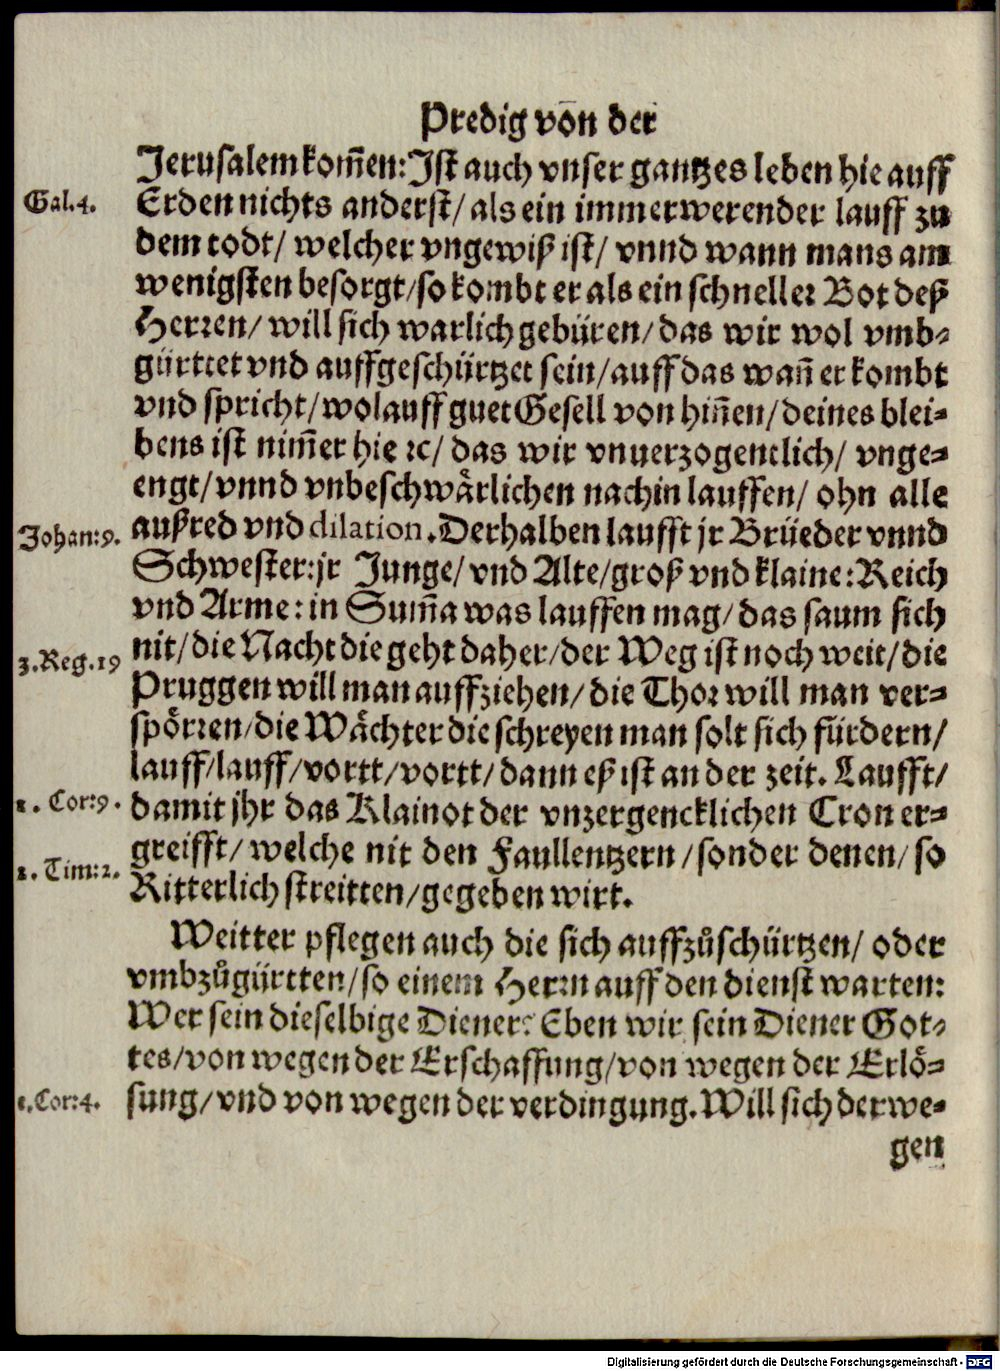 Predig von der
Jerusalem kom̄en: Ist auch vnser gantzes leben hie auff
Gal. 4.
Erden nichts anderst/ als ein immerwerender lauff zu
dem todt/ welcher vngewiß ist/ vnnd wann mans am
wenigsten besorgt/ so kombt er als ein schneller Bot deß
Herren/ will sich warlich gebüren/ das wir wol vmb-
gürttet vnd auffgeschürtzet sein/ auff das wañ er kombt
vnd spricht/ wolauff guet Gesell von hiñen/ deines blei-
bens ist nim̄er hie ꝛc/ das wir vnuerzogentlich/ vnge-
engt/ vnnd vnbeschwärlichen nachin lauffen/ ohn alle
Johan: 9.
außred vnd dilation. Derhalben laufft jr Brüeder vnnd
Schwester: jr Junge/ vnd Alte/ groß vnd klaine: Reich
vnd Arme: in Sum̄a was lauffen mag/ das saum sich
3. Reg. 19
nit/ die Nacht die geht daher/ der Weg ist noch weit/ die
Pruggen will man auffziehen/ die Thor will man ver-
spörren/ die Wächter die schreyen man solt sich fürdern/
lauff/ lauff/ vortt/ vortt/ dann eß ist an der zeit. Laufft/
1. Cor: 9.
damit jhr das Klainot der vnzergencklichen Cron er-
greifft/ welche nit den Faullentzern/ sonder denen/ so
2. Tim: 2.
Ritterlich streitten/ gegeben wirt.
Weitter pflegen auch die sich auffzůschürtzen/ oder
vmbzůgürtten/ so einem Herrn auff den dienst warten:
Wer sein dieselbige Diener? Eben wir sein Diener Got-
tes/ von wegen der Erschaffung/ von wegen der Erlö-
1. Cor: 4.
sung/ vnd von wegen der verdingung. Will sich derwe-
gen
Digitalisierung gefördert durch die Deutsche Forschungsgemeinschaft - DFG